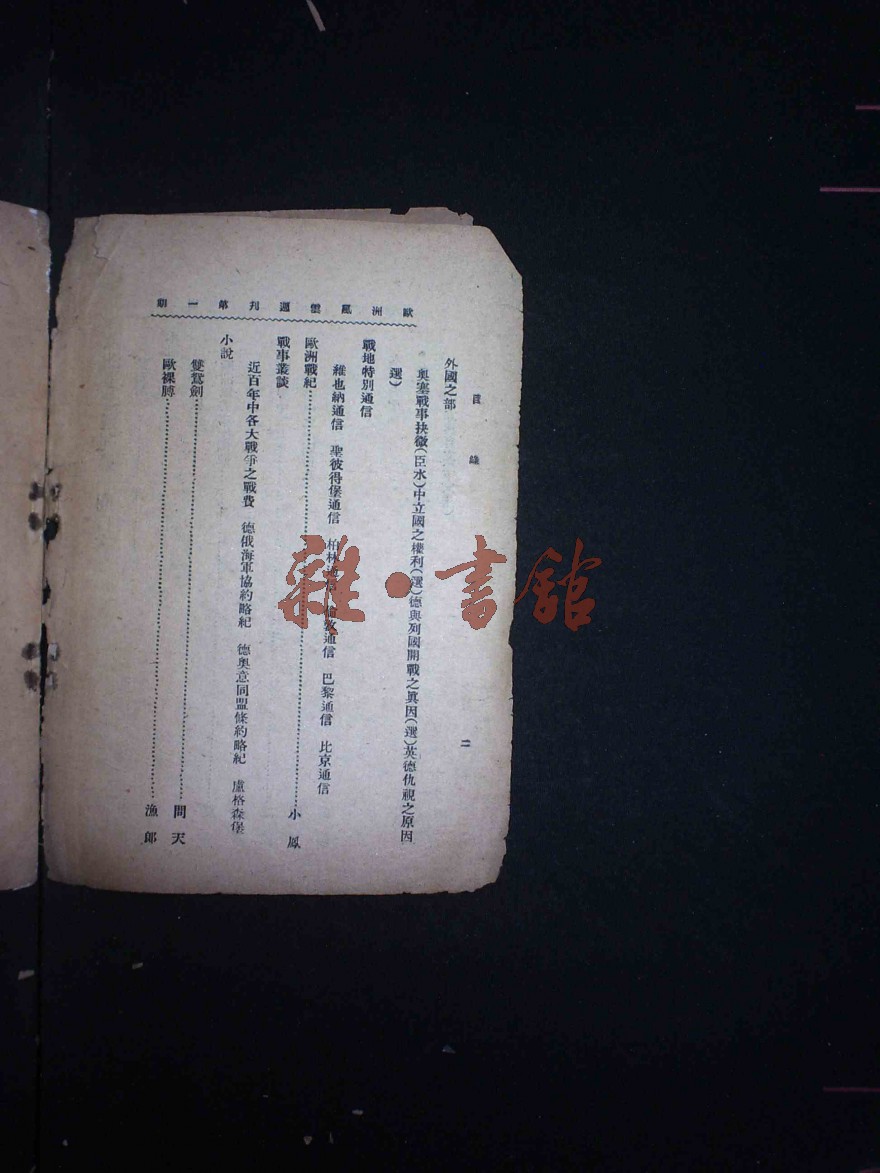 歐洲風雲週刊第一期
目錄
二
外國之部
奧塞戰事抉微(臣水)中立國之權利(選)德與列國開戰之眞因(選)英德仇視之原因
選)
戰地特別通信
維也納通信 聖彼得堡通信 柏林通信 倫敦通信 巴黎通信 比京通信
歐洲戰紀……小鳳
戰事叢談
近百年中各大戰爭之戰費 德俄海軍協約略紀 德奧意同盟條約略紀 盧格森堡
小說
雙鴛劍……問天
歐裸膊……漁郎
雜·書館